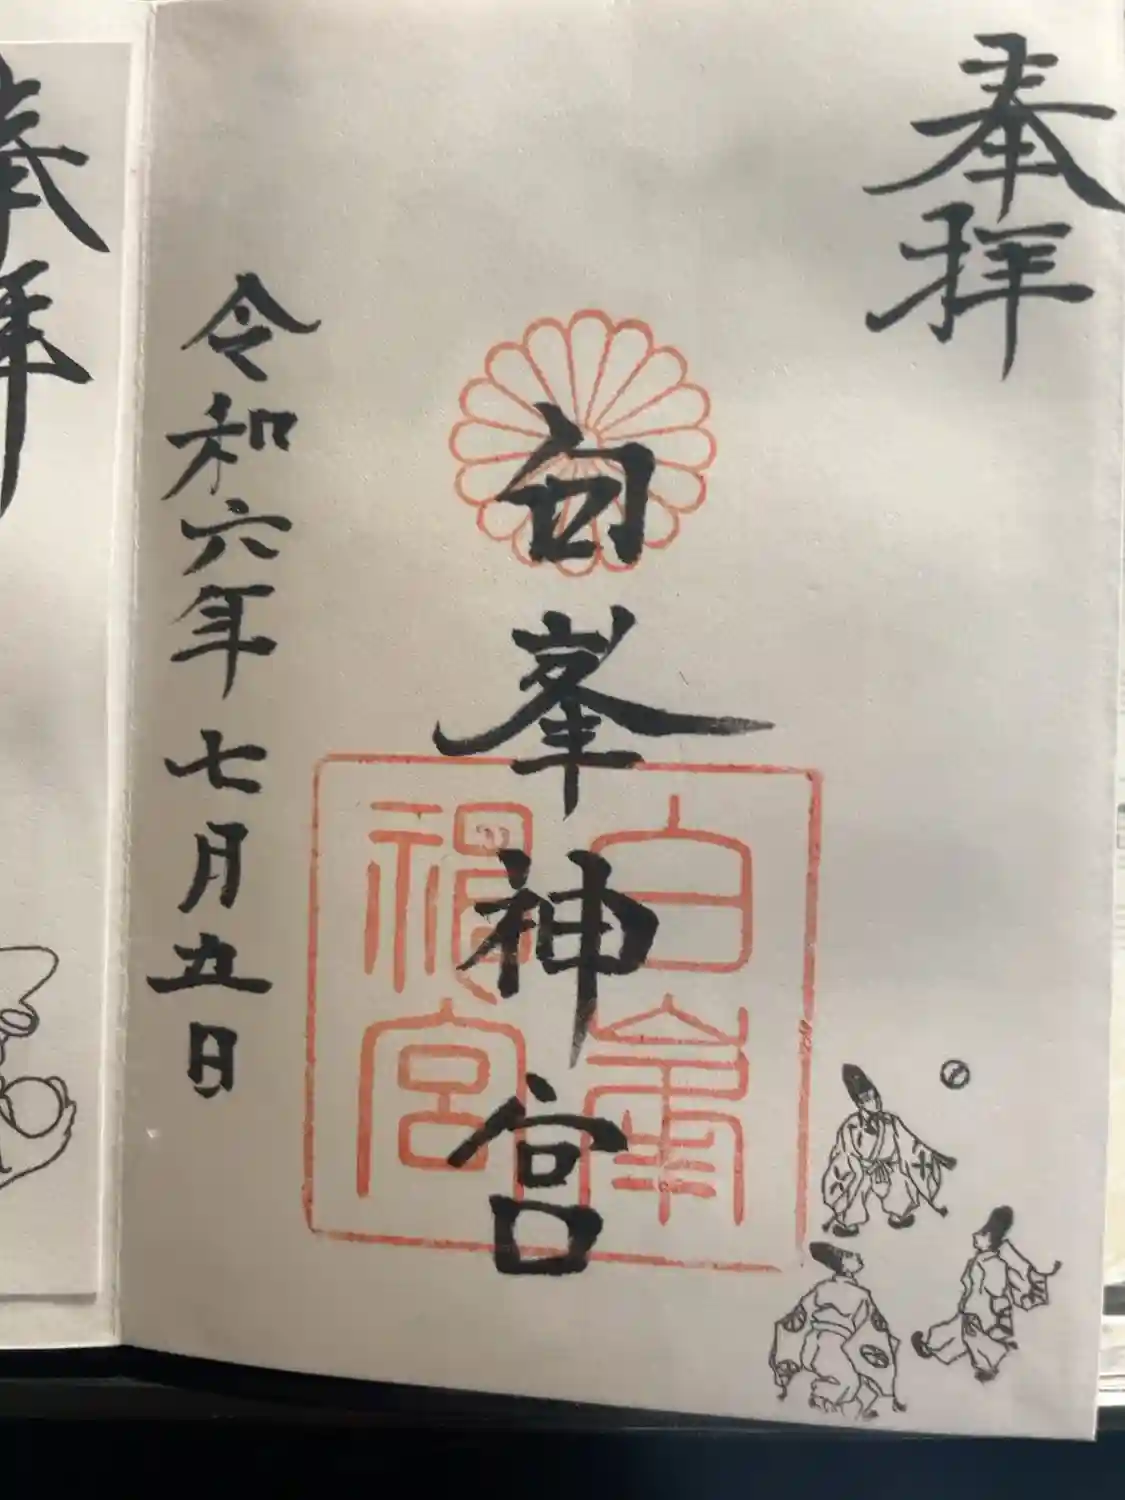 奉拝
白峯神宮
白峯
神宮
令和六年七月五日
奉拝